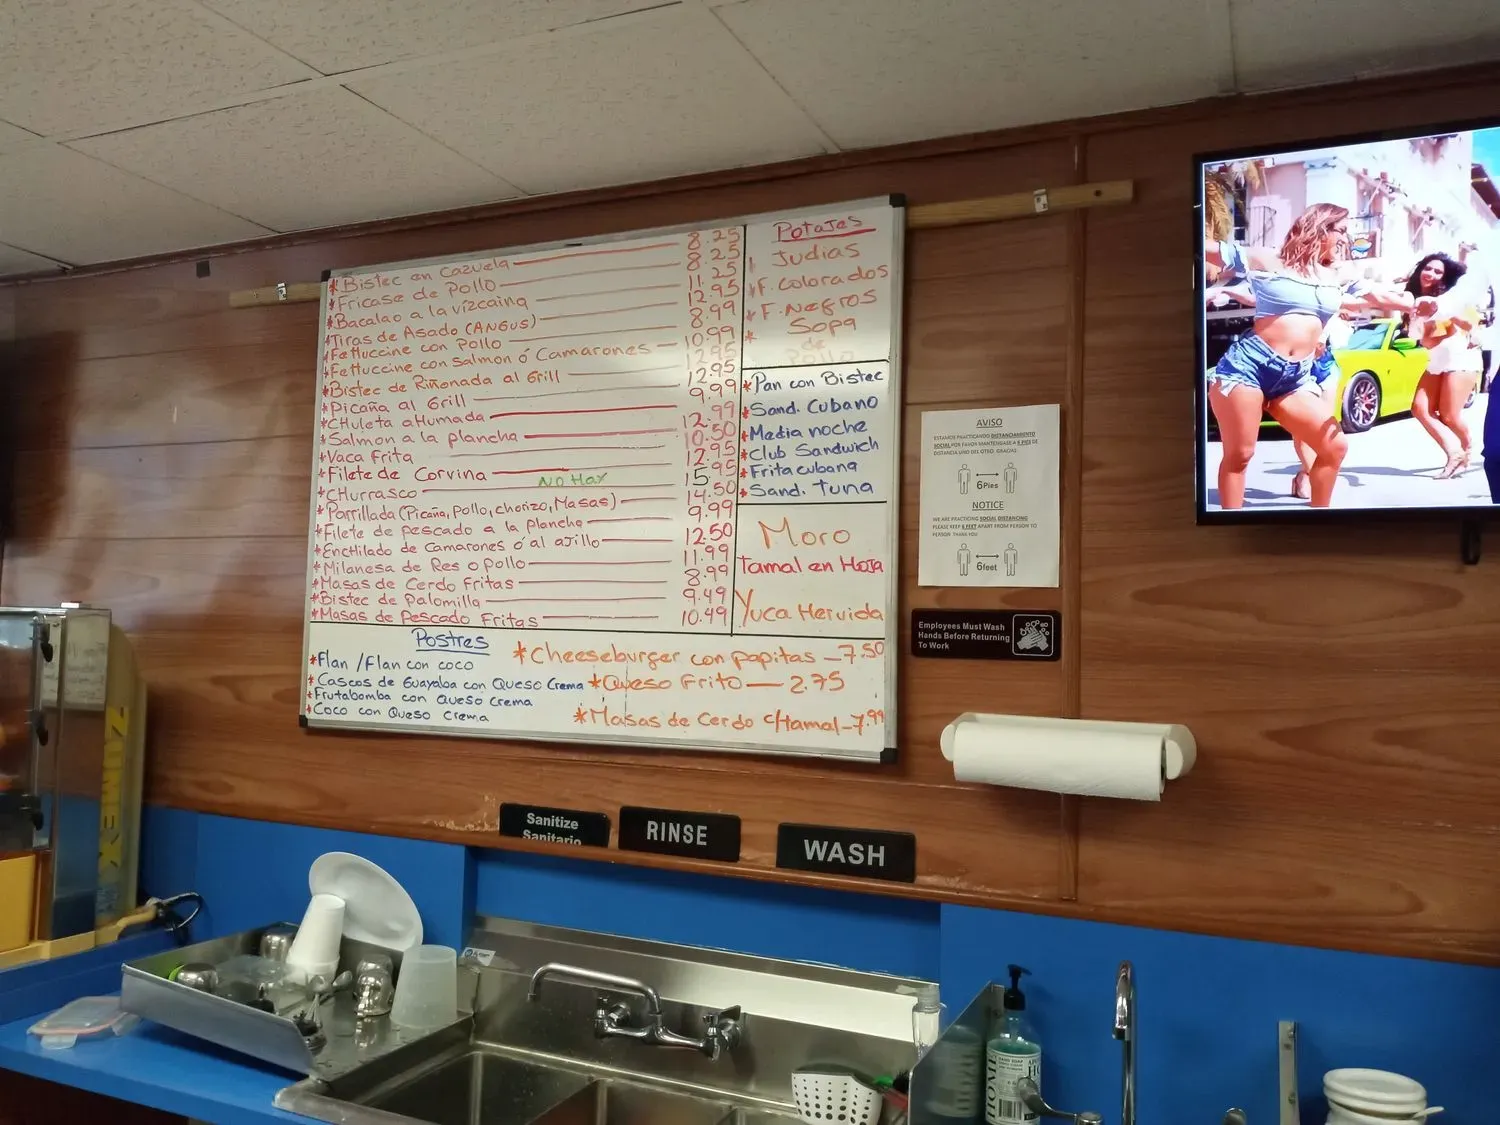 *Bistec en Cazuela 8.25
*Fricase de Pollo 8.25
*Bacalao a la vizcaina 11.25
*Tiras de Asado (ANGUS) 12.95
*Fettuccine con Pollo 8.99
*Fettuccine con Salmon ó Camarones 10.99
*Bistec de Riñonada al Grill 12.95
*Picaña al Grill 12.95
*CHuleta aHumada 9.99
*Salmon a la plancha 12.99
*Vaca frita 10.50
*Filete de Corvina 12.95
*CHurrasco NO Hay 15.95
*Parrillada (Picaña, Pollo, chorizo, Masas) 14.50
*Filete de pescado a la plancha 9.99
*EncHilado de Camarones ó al ajillo 12.50
*Milanesa de Res o pollo 11.99
*Masas de Cerdo Fritas 8.99
*Bistec de Palomilla 9.49
*Masas de Pescado Fritas 10.49
Potajes
* Judias
*F. Colorados
*F. Negros
* Sopa
de
Pollo
*Pan con Bistec
*Sand. Cubano
*Media noche
*Club Sandwich
*Frita cubana
*Sand. Tuna
Moro
Tamal en Hoja
Yuca Hervida
Postres
*Flan /Flan con coco
*Cascos de Guayaba con Queso Crema
*Frutabomba con Queso Crema
*Coco con Queso Crema
*Cheeseburger con papitas - 7.50
*Queso Frito - 2.75
*Masas de Cerdo c/tamal - 7.99
AVISO
ESTAMOS PRACTICANDO DISTANCIAMIENTO
SOCIAL POR FAVOR MANTENGASE A 6 PIES DE
DISTANCIA UNO DEL OTRO. GRACIAS
6Pies
NOTICE
WE ARE PRACTICING SOCIAL DISTANCING
PLEASE KEEP 6 FEET APART FROM PERSON TO
PERSON. THANK YOU
6feet
Employees Must Wash
Hands Before Returning
To Work
Sanitize
Sanitario
RINSE
WASH
ZUMEX